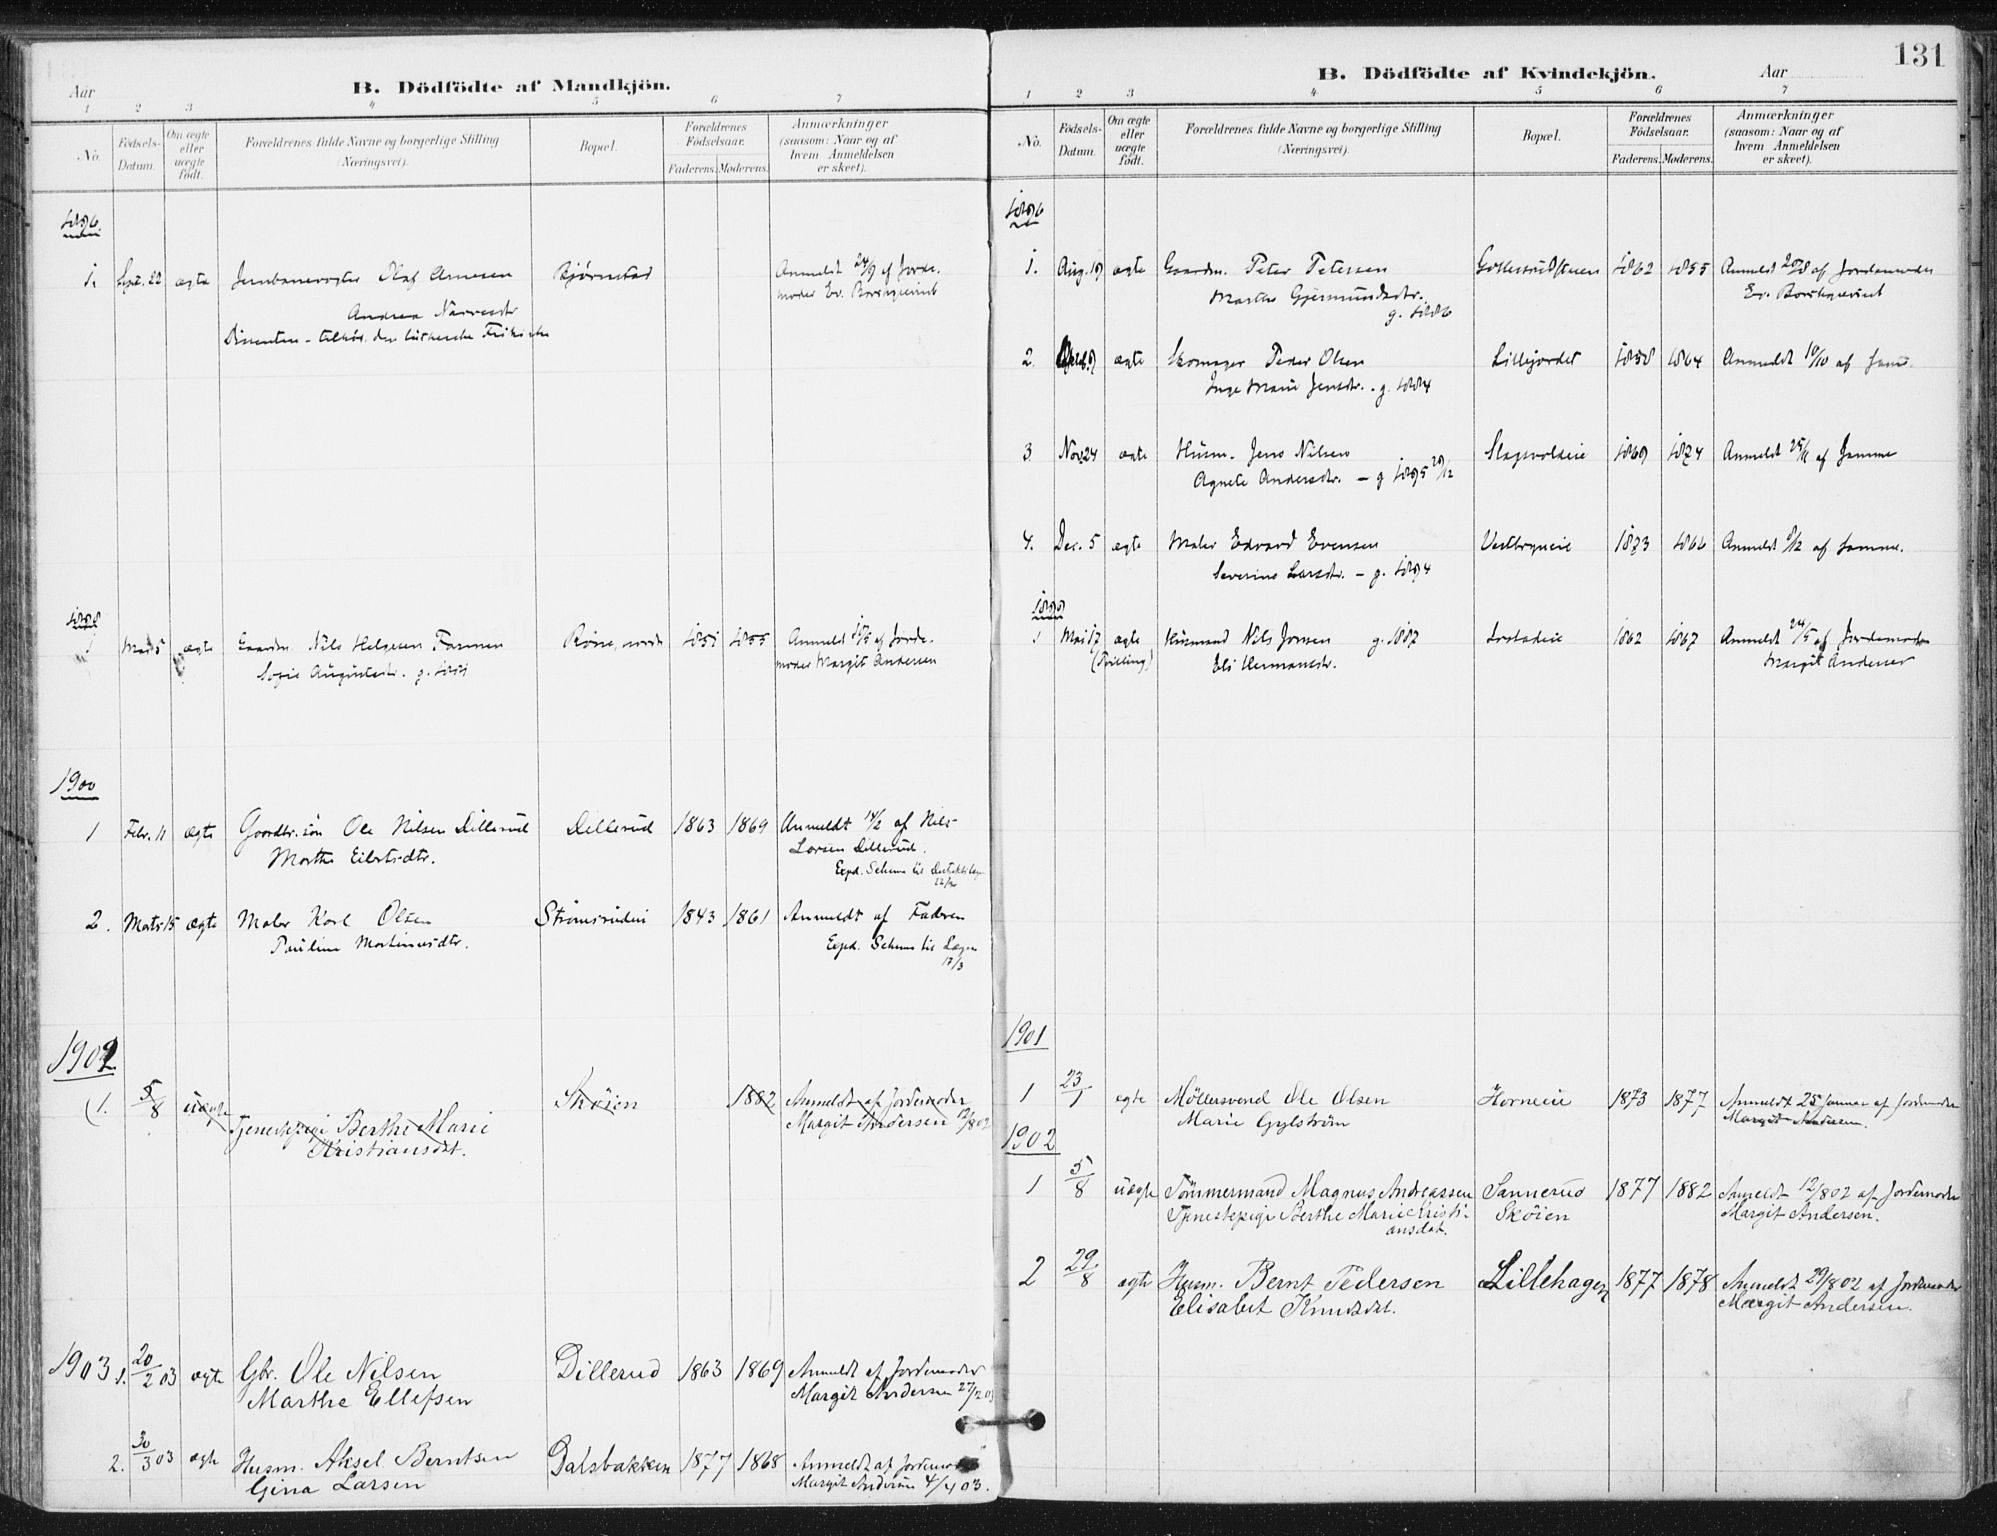 B. Dödfödte af Mandkjön.
Aar
1 2 3 4 5 6 7
No.
Födsels-Datum.
Om ægte eller uægte födt.
Forældrenes fulde Navne og borgerlige Stilling (Næringsvei).
Bopæl.
Forældrenes Födselsaar.
Faderens. Moderens.
Anmærkninger (saasom: Naar og af hvem Anmeldelsen er skeet).
1896
1. Sept. 22 ægte Jernbanevogter Olaf Arnesen Bjørnstad Anmeldt 24/9 af Jorde-
moder Ev. Borchgrevink
Andrea
Dissenter - den lutherske Frikirke
1898
1 5 ægte Gaardm. Nils Helgesen 1851 1855 Anmeldt af Jorde-
moder Margit Andersen
Sofie Augustsdtr. g.
1900
1 Febr. 11 ægte Gaardbr. søn Ole Nilsen Dillerud Dillerud 1863 1869 Anmeldt 14/2 af Nils
Larsen Dillerud.
Marthe Eilertsdtr.
Exped. Schema til
2. Marts 15 ægte Maler Karl Olsen 1843 1861 Anmeldt af Faderen
Pauline Martinusdtr.
Exped. Schema til Lægen
17/3
1902
(1. 5/8 uægte Tjenestepige Berthe Marie Skøien 1882 Anmeldt af Jordemoder
Kristiansdt. Margit Andersen 12/8 02
1903 1. 20/2 03 ægte Gbr. Ole Nilsen Dillerud 1863 1869 Anmeldt af Jordemoder
Marthe Ellefsen Margit Andersen 27/2 03
2. 30/3 03 ægte Husm. Aksel Berntsen Dalsbakken 1877 1868 Anmeldt af Jordemoder
Gina Larsen Margit Andersen 4/4 03.
131
B. Dödfödte af Kvindekjön.
Aar
1 2 3 4 5 6 7
No.
Födsels-Datum.
Om ægte eller uægte födt.
Forældrenes fulde Navne og borgerlige Stilling (Næringsvei).
Bopæl.
Forældrenes Födselsaar.
Faderens. Moderens.
Anmærkninger (saasom: Naar og af hvem Anmeldelsen er skeet).
1896
1. Aug. 19 ægte Gaardm. Peter Petersen 1862 1855 Anmeldt 20/8 af Jordemoder
Marthe Gjermundsdtr. Ev. Borchgrevink
g. 1886
2. ægte Skomager Peder Olsen Lillejordet 1858 1864 Anmeldt 10/10 af samme
Inge Marie Jensdtr. - g. 1884
3 Nov. 24 ægte Husm. Jens Nilsen Slagsvoldeie 1869 1874 Anmeldt 25/11 af Samme
Agnete Andersdtr. - g 1895 29/12
4. Dec. 5 ægte Maler Edvard Evensen 1873 1866 Anmeldt af samme.
Severine Larsdtr. - g. 1894
1898
1 Mai 17 ægte Husmand Nils Jonsen g. 1887 1862 1867 Anmeldt 24/5 af Jordemoder
(Tvilling) Eli Hermansdtr. Margit Andersen
1901
1 23/1 ægte Møllersvend Ole Olsen Horneie 1873 1877 Anmeldt 25 Januar af Jordemoder
Marie Gylstrøm Margit Andersen.
1902
1 5/8 uægte Tømmermand Magnus Andreassen Sannerud 1877 1882 Anmeldt 12/8 02 af Jordemoder
Tjenestepige Berthe Marie Kristi- Skøien Margit Andersen.
ansdat.
2 29/8 ægte Husm. Bernt Pedersen Lillehagen 1877 1878 Anmeldt 29/8 02 af Jordemoder
Elisabet Knudsdat. Margit Andersen.